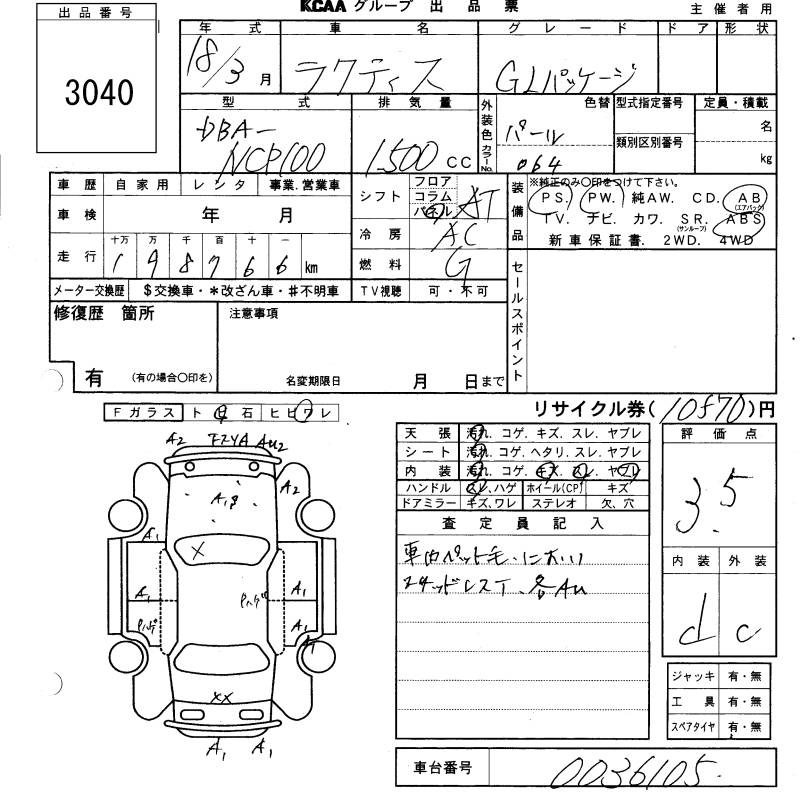 出品番号
3040
KCAA グループ 出品票
主催者用
年式 車名 グレード ドア 形状
18/3 月 ラクティス G Lパッケージ
型式 排気量 外装色 色替 型式指定番号 定員・積載
DBA-
NCP100 1500 CC パール 名
カラーNo. 064 類別区別番号 kg
車歴 自家用 レンタ 事業.営業車
シフト フロア コラム パネル AT
装備品 ※純正のみ〇印をつけて下さい。
PS. PW. 純AW. CD. AB (エアバッグ)
TV. ナビ. カワ. SR. (サンルーフ) ABS
新車保証書. 2WD. 4WD
車検 年 月
冷房 AC
走行 十万 万 千 百 十 一
1 9 8 7 6 6 km
燃料 G
メーター交換歴 $交換車・*改ざん車・#不明車
TV視聴 可・不可
セールスポイント
修復歴 箇所
有 (有の場合〇印を)
注意事項
名変期限日 月 日まで
Fガラス ト 石 ヒビワレ
リサイクル券(10870)円
天張 汚れ. コゲ. キズ. スレ. ヤブレ
シート 汚れ. コゲ. ヘタリ. スレ. ヤブレ
内装 汚れ. コゲ. キズ. スレ. ヤブレ
ハンドル スレ. ハゲ ホイール(CP) キズ
ドアミラー キズ. ワレ ステレオ 欠. 穴
評価点
3.5
内装 外装
d c
査定員記入
車内ペット毛.におい
スタッドレスT、各AU
A2 フタYA AU2
A2
A1キ
A1
X
A1 Pハゲ A1
Pハゲ A1
A1
XX
A1 A1
ジャッキ 有・無
工具 有・無
スペアタイヤ 有・無
車台番号 0036105.